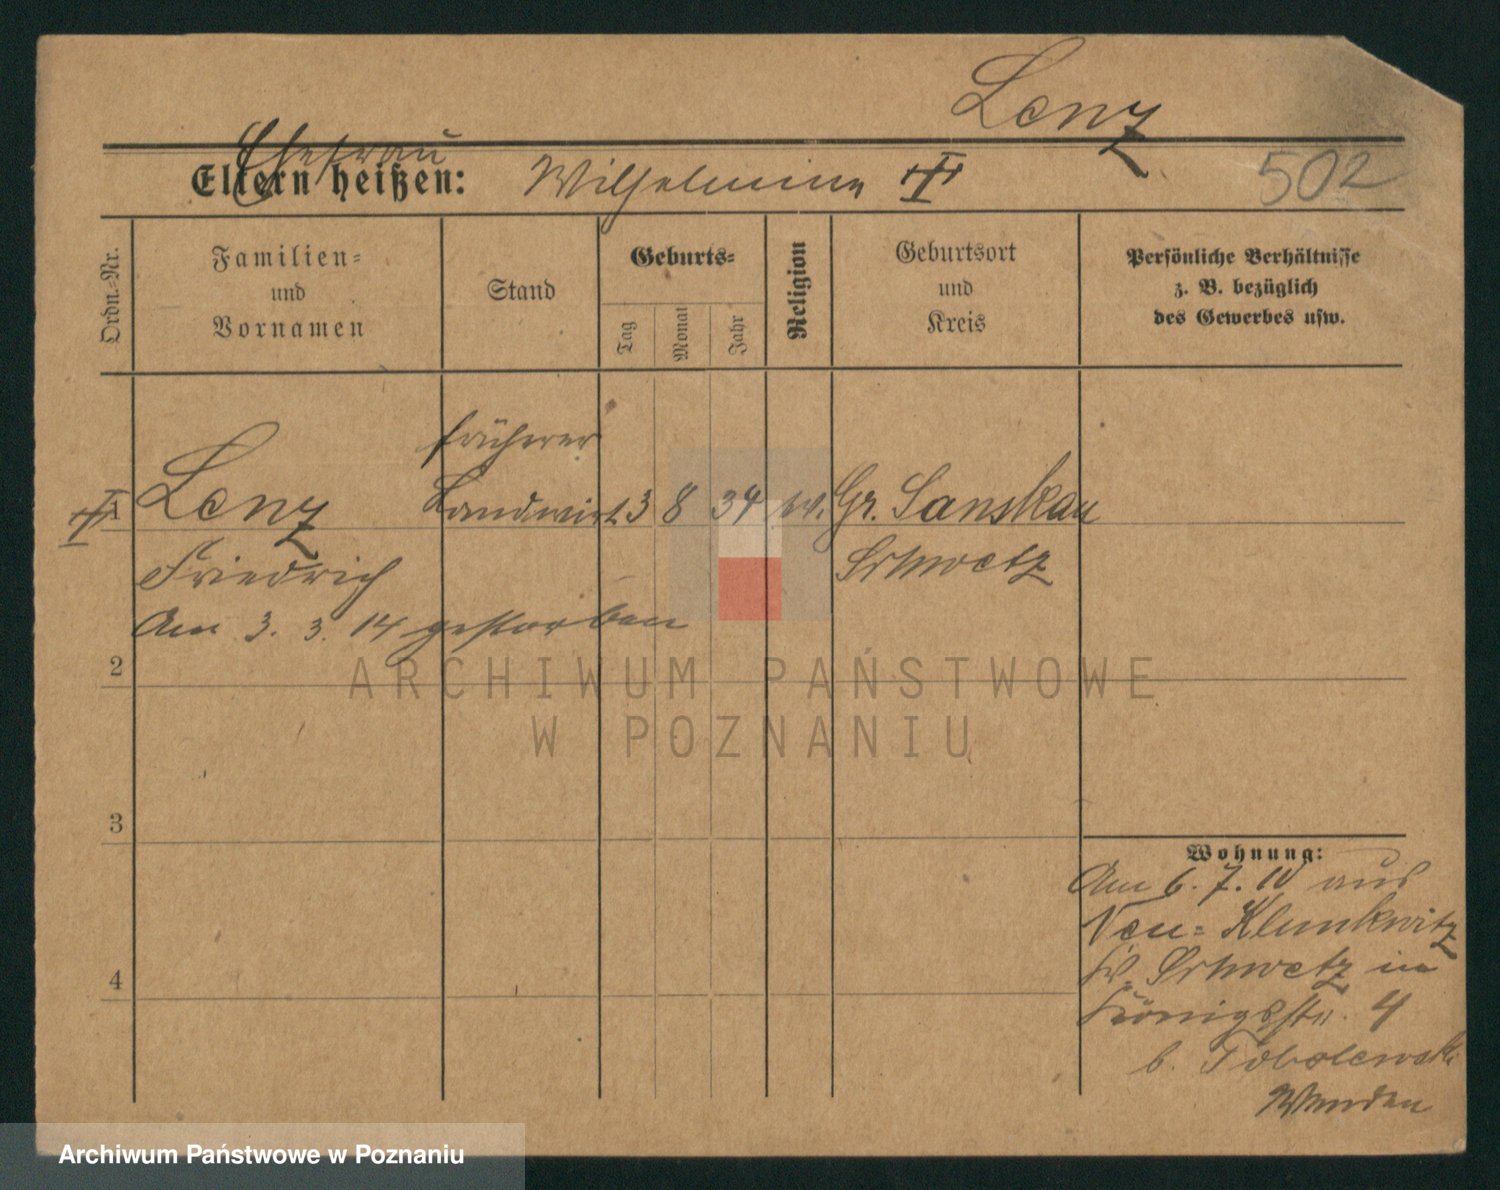 Lenz
Ehefrau
Eltern heißen: Wilhelmine
502
Ordn.-Nr.
Familien-
und
Vornamen
Stand
Geburts-
Tag
Monat
Jahr
Religion
Geburtsort
und
Kreis
Persönliche Verhältnisse
z. B. bezüglich
des Gewerbes usw.
früherer
1 Lenz Landwirt 3 8 34 ev. Gr. Sanskau
Friedrich Schwetz
Am 3. 3. 14 gestorben
2
ARCHIWUM PAŃSTWOWE
W POZNANIU
3
Wohnung:
Am 6. 7. 10 aus
Neu-Klunkwitz
Schwetz in
4
Königstr. 4
b. Tobolewski
Archiwum Państwowe w Poznaniu